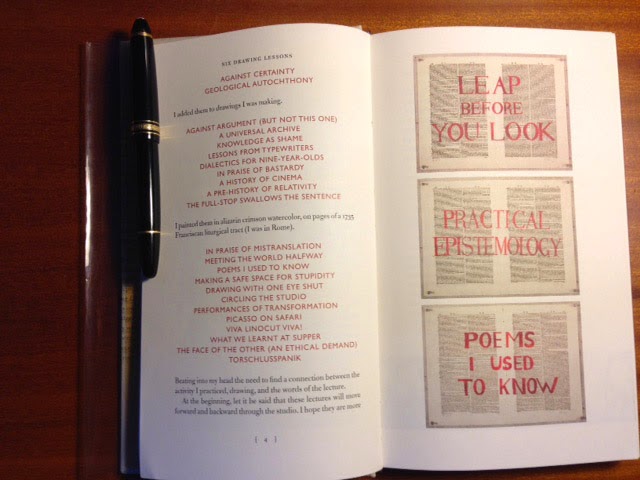 SIX DRAWING LESSONS
AGAINST CERTAINTY
GEOLOGICAL AUTOCHTHONY
I added them to drawings I was making.
AGAINST ARGUMENT (BUT NOT THIS ONE)
A UNIVERSAL ARCHIVE
KNOWLEDGE AS SHAME
LESSONS FROM TYPEWRITERS
DIALECTICS FOR NINE-YEAR-OLDS
IN PRAISE OF BASTARDY
A HISTORY OF CINEMA
A PRE-HISTORY OF RELATIVITY
THE FULL-STOP SWALLOWS THE SENTENCE
I painted them in alizarin crimson watercolor, on pages of a 1735
Franciscan liturgical tract (I was in Rome).
IN PRAISE OF MISTRANSLATION
MEETING THE WORLD HALFWAY
POEMS I USED TO KNOW
MAKING A SAFE SPACE FOR STUPIDITY
DRAWING WITH ONE EYE SHUT
CIRCLING THE STUDIO
PERFORMANCES OF TRANSFORMATION
PICASSO ON SAFARI
VIVA LINOCUT VIVA!
WHAT WE LEARNT AT SUPPER
THE FACE OF THE OTHER (AN ETHICAL DEMAND)
TORSCHLUSSPANIK
Beating into my head the need to find a connection between the
activity I practiced, drawing, and the words of the lecture.
At the beginning, let it be said that these lectures will move
forward and backward through the studio. I hope they are more
[ 4 ]
LEAP
BEFORE
YOU LOOK
PRACTICAL
EPISTEMOLOGY
POEMS
I USED
TO KNOW